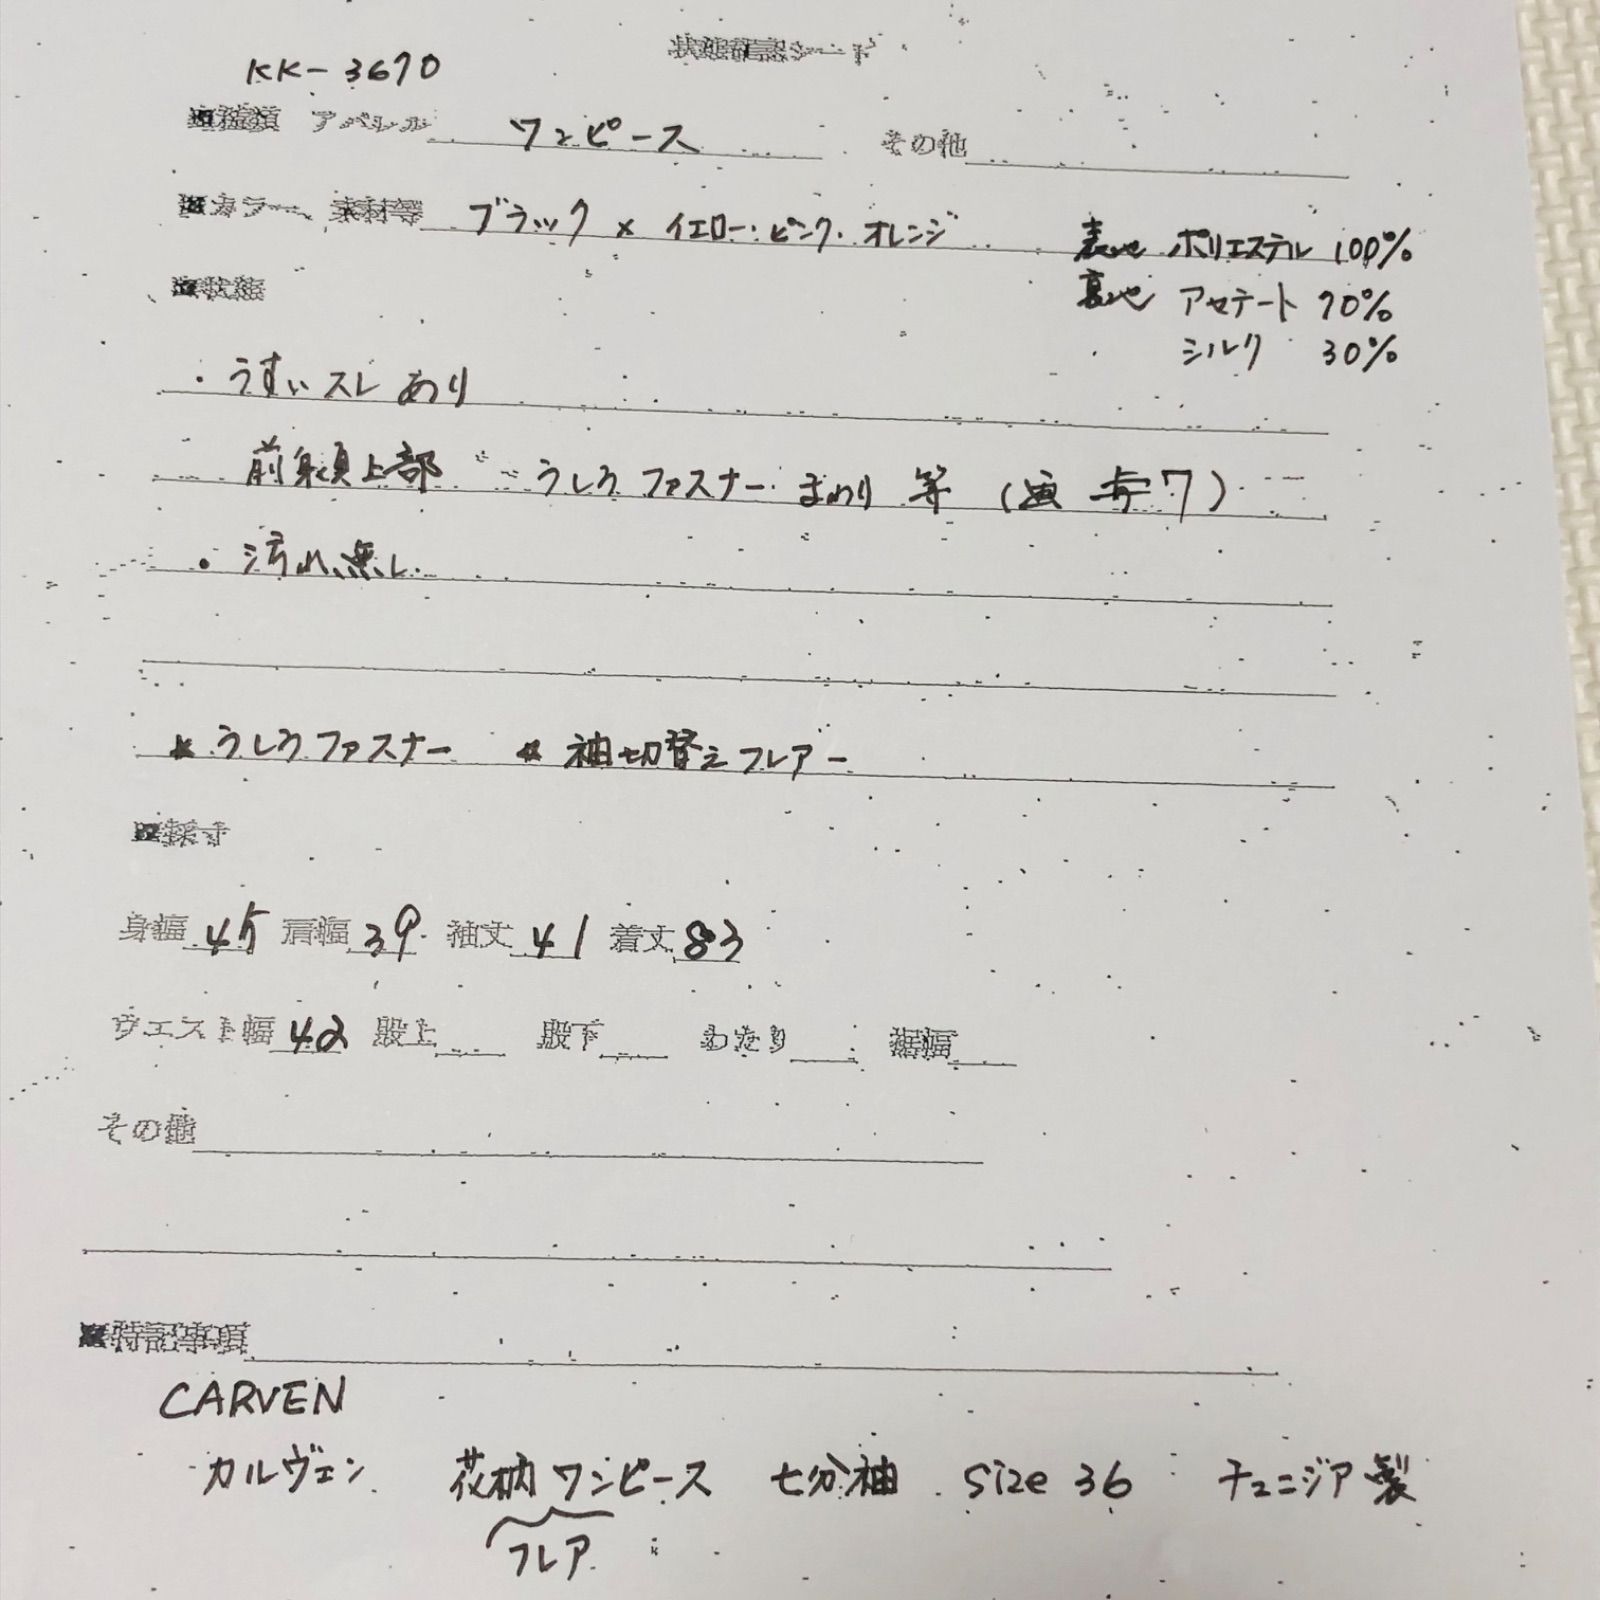 状態確認シート
KK-3670
■種類 アパレル ワンピース その他
■カラー、素材等 ブラック × イエロー・ピンク・オレンジ 表地 ポリエステル 100%
裏地 アセテート 70%
シルク 30%
■状態
・うすいスレあり
前身頃上部 うしろファスナーまわり 等 (
・汚れ無し
* うしろファスナー * 袖切替えフレアー
■採寸
身幅 45 肩幅 39 袖丈 41 着丈 83
ウエスト幅 42 股上 股下 わたり 裾幅
その他
■特記事項
CARVEN
カルヴェン 花柄ワンピース 七分袖 size 36 チュニジア製
フレア